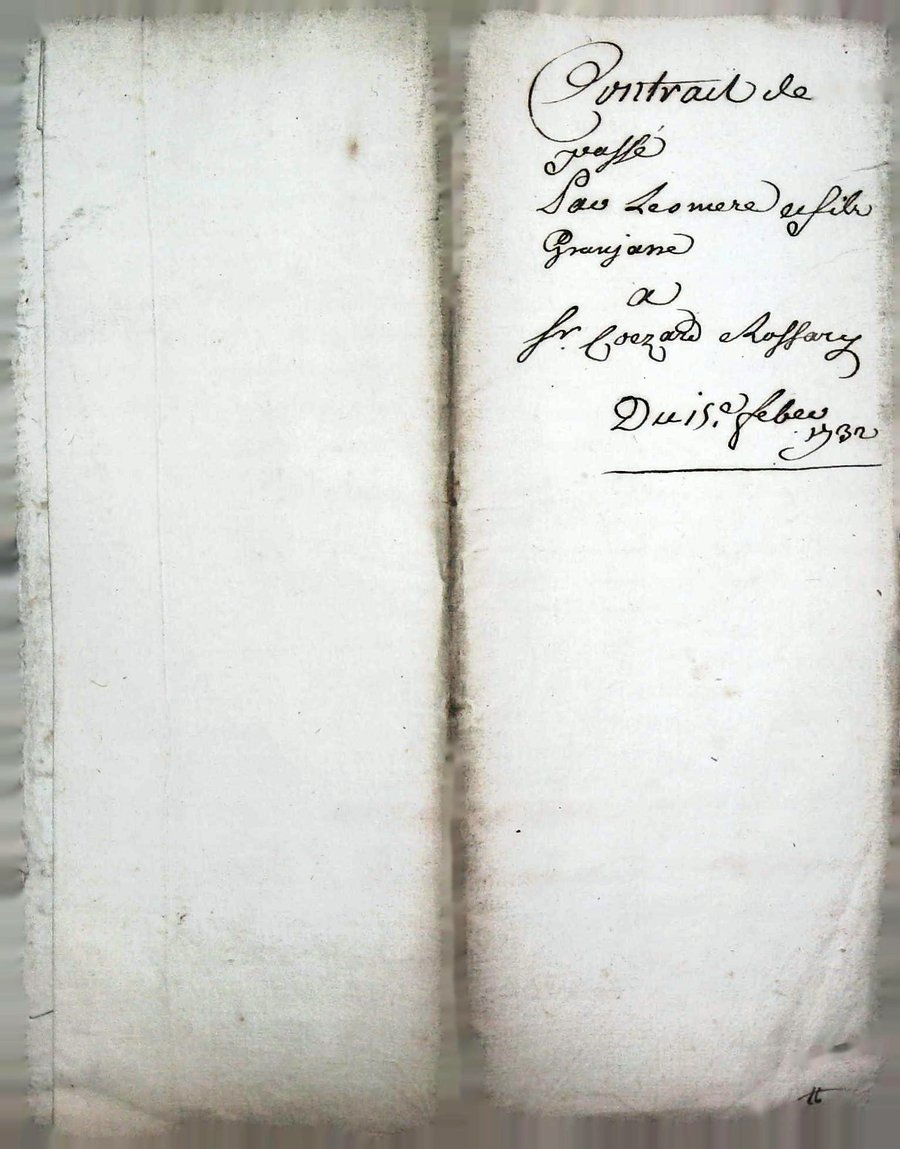 Contract de
passé
Par Les mere et fils
Granjane
a
Sr. Coezard Rossary
Du 15.e feber
1732